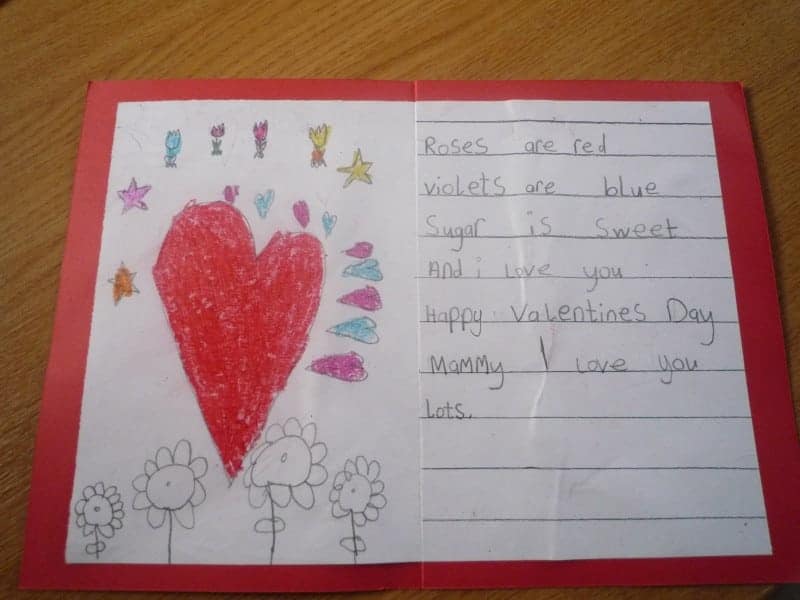 Roses are red
violets are blue
Sugar is sweet
And i love you
Happy Valentines Day
Mammy I love you
lots.